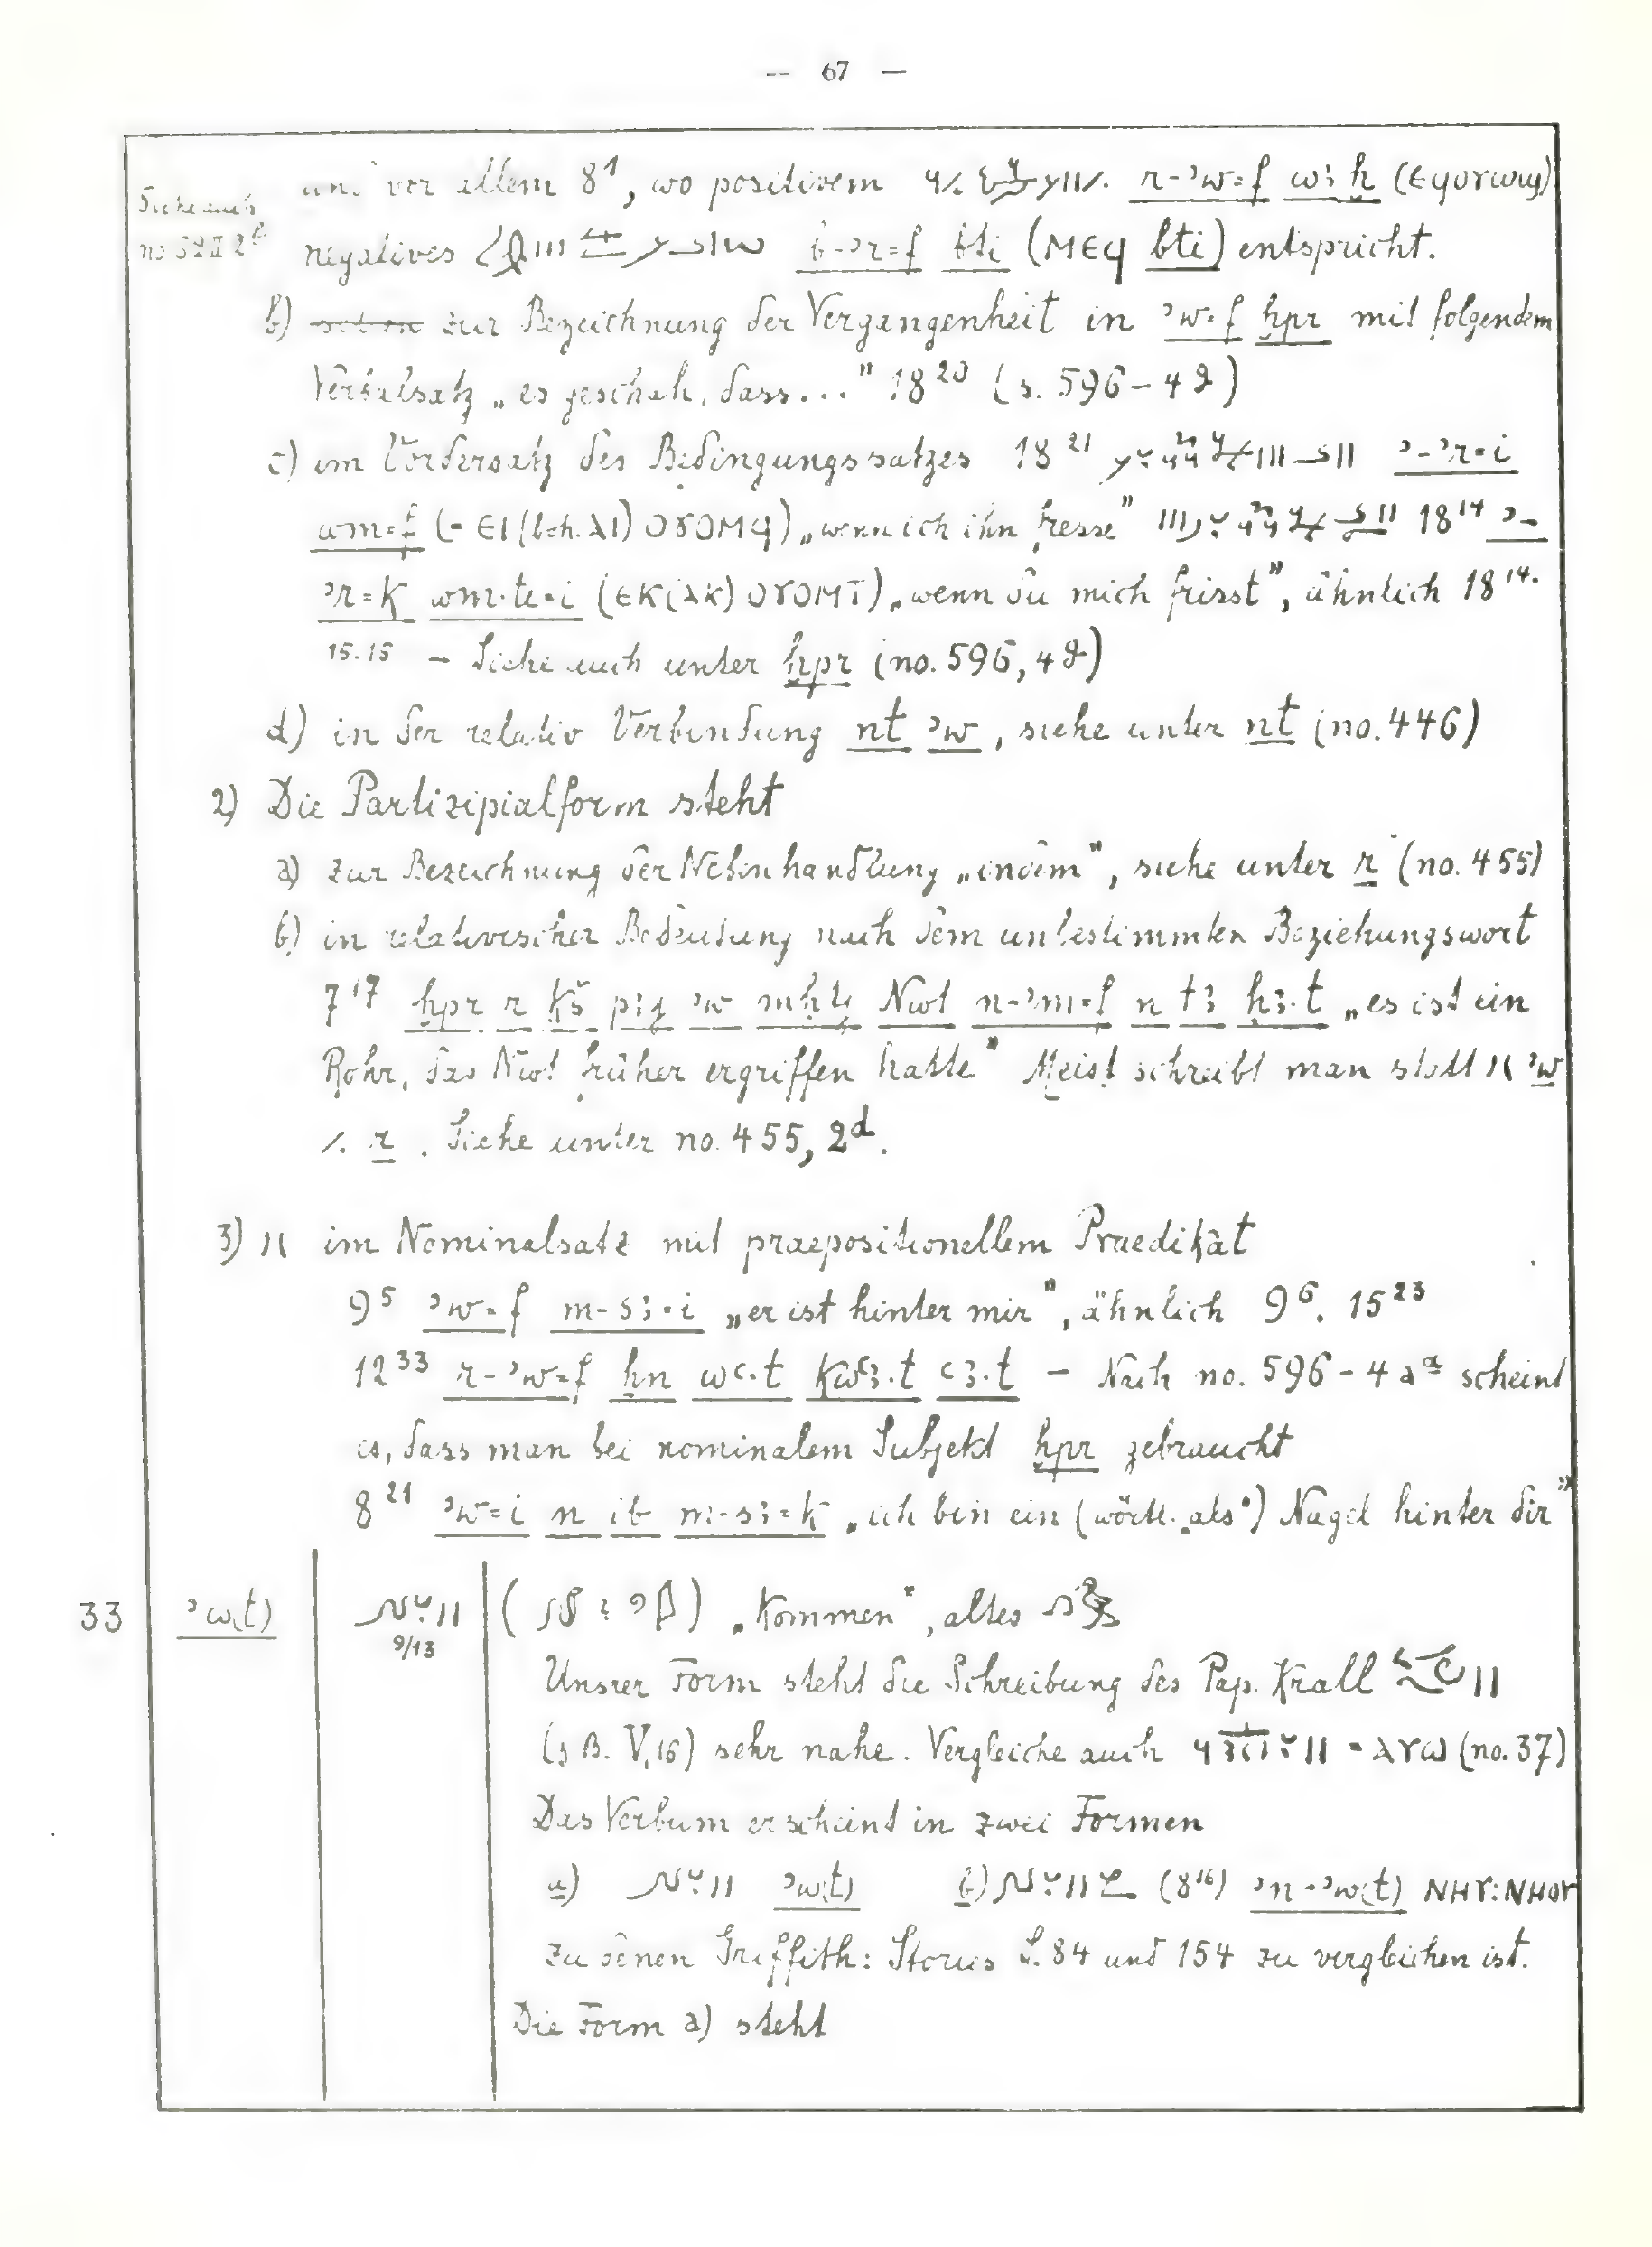 — 67 —
Siehe auch
no 52 II 2
und vor allem 8¹, wo positivem r-ꜣw=f wꜣḥ (ⲉϥⲟⲩⲱϣ)
negatives b-ꜣr=f bti (ⲙⲉϥ bti) entspricht.
b) zur Bezeichnung der Vergangenheit in ꜣw=f ḫpr mit folgendem
Verbalsatz „es geschah, dass..." 18²⁰ (s. 596-4ϑ)
c) im Vordersatz des Bedingungssatzes 18²¹ ꜣ-ꜣr=i
wm=f (= ⲉⲓ (boh. ⲁⲓ) ⲟⲩⲟⲙϥ) „wenn ich ihn fresse" 18¹⁴ ꜣ-
ꜣr=k wm.ṱ=i (ⲉⲕ(ⲁⲕ) ⲟⲩⲟⲙⲧ) „wenn du mich frisst", ähnlich 18¹⁴.
15.15 – Siehe auch unter ḫpr (no. 596, 4ϑ)
d) in der relativ Verbindung nt ꜣw, siehe unter nt (no. 446)
2) Die Partizipialform steht
a) zur Bezeichnung der Nebenhandlung „indem", siehe unter r (no. 455)
b) in relativischer Bedeutung nach dem unbestimmten Beziehungswort
7¹⁷ ḫpr r ḳš pꜣj ꜣw mḥṱ Nwt n-ꜣm=f n tꜣ ḥꜣ.t „es ist ein
Rohr, das Nwt früher ergriffen hatte" Meist schreibt man statt ꜣw
r. Siehe unter no. 455, 2ᵈ.
3) im Nominalsatz mit praepositionellem Praedikat
9⁵ ꜣw=f m-sꜣ=i „er ist hinter mir", ähnlich 9⁶. 15²³
12³³ r-ꜣw=f ḫn wꜥ.t ꜥꜣ.t – Nach no. 596-4a scheint
es, dass man bei nominalem Subjekt ḫpr gebraucht
8²¹ ꜣw=i n ib m-sꜣ=k „ich bin ein (wörtl. „als") Nagel hinter dir"
33 ꜣw(t) 9/13 „Kommen", altes
Unsrer Form steht die Schreibung des Pap. Krall
(z B. V,16) sehr nahe. Vergleiche auch = ⲁⲩⲱ (no. 37)
Das Verbum erscheint in zwei Formen
a) ꜣw(t) b) (8¹⁶) ꜣn-ꜣw(t) ⲛⲏⲩ: ⲛⲏⲟⲩ
zu denen Griffith: Stories S. 84 und 154 zu vergleichen ist.
Die Form a) steht